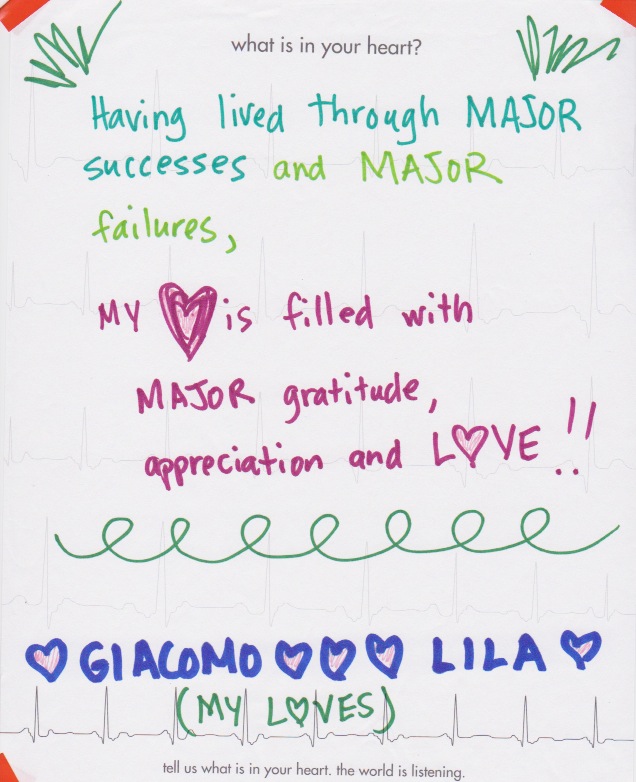 what is in your heart?
Having lived through MAJOR
successes and MAJOR
failures,
MY ♥ is filled with
MAJOR gratitude,
appreciation and L♥VE!!
♥ GIACOMO ♥ ♥ ♥ LILA ♥
(MY L♥VES)
tell us what is in your heart. the world is listening.